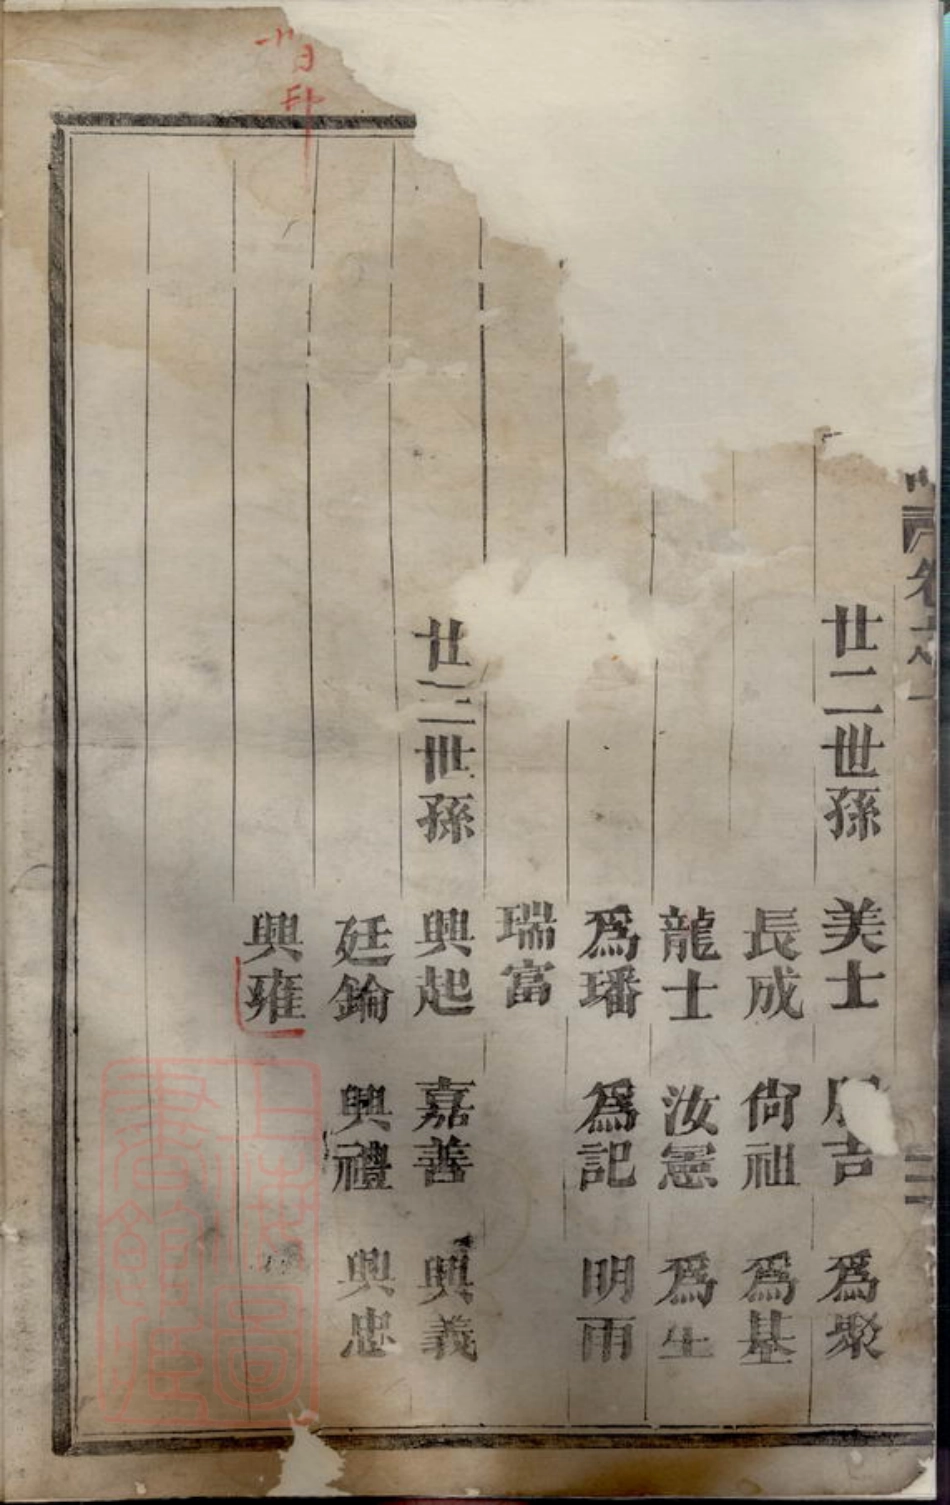 廿二世孫 美士 吉 爲聚
長成 尙祖 爲基
龍士 汝憲 爲生
爲璠 爲記 明雨
瑞富
廿三世孫 興起 嘉善 興義
廷錀 興禮 興忠
興雍